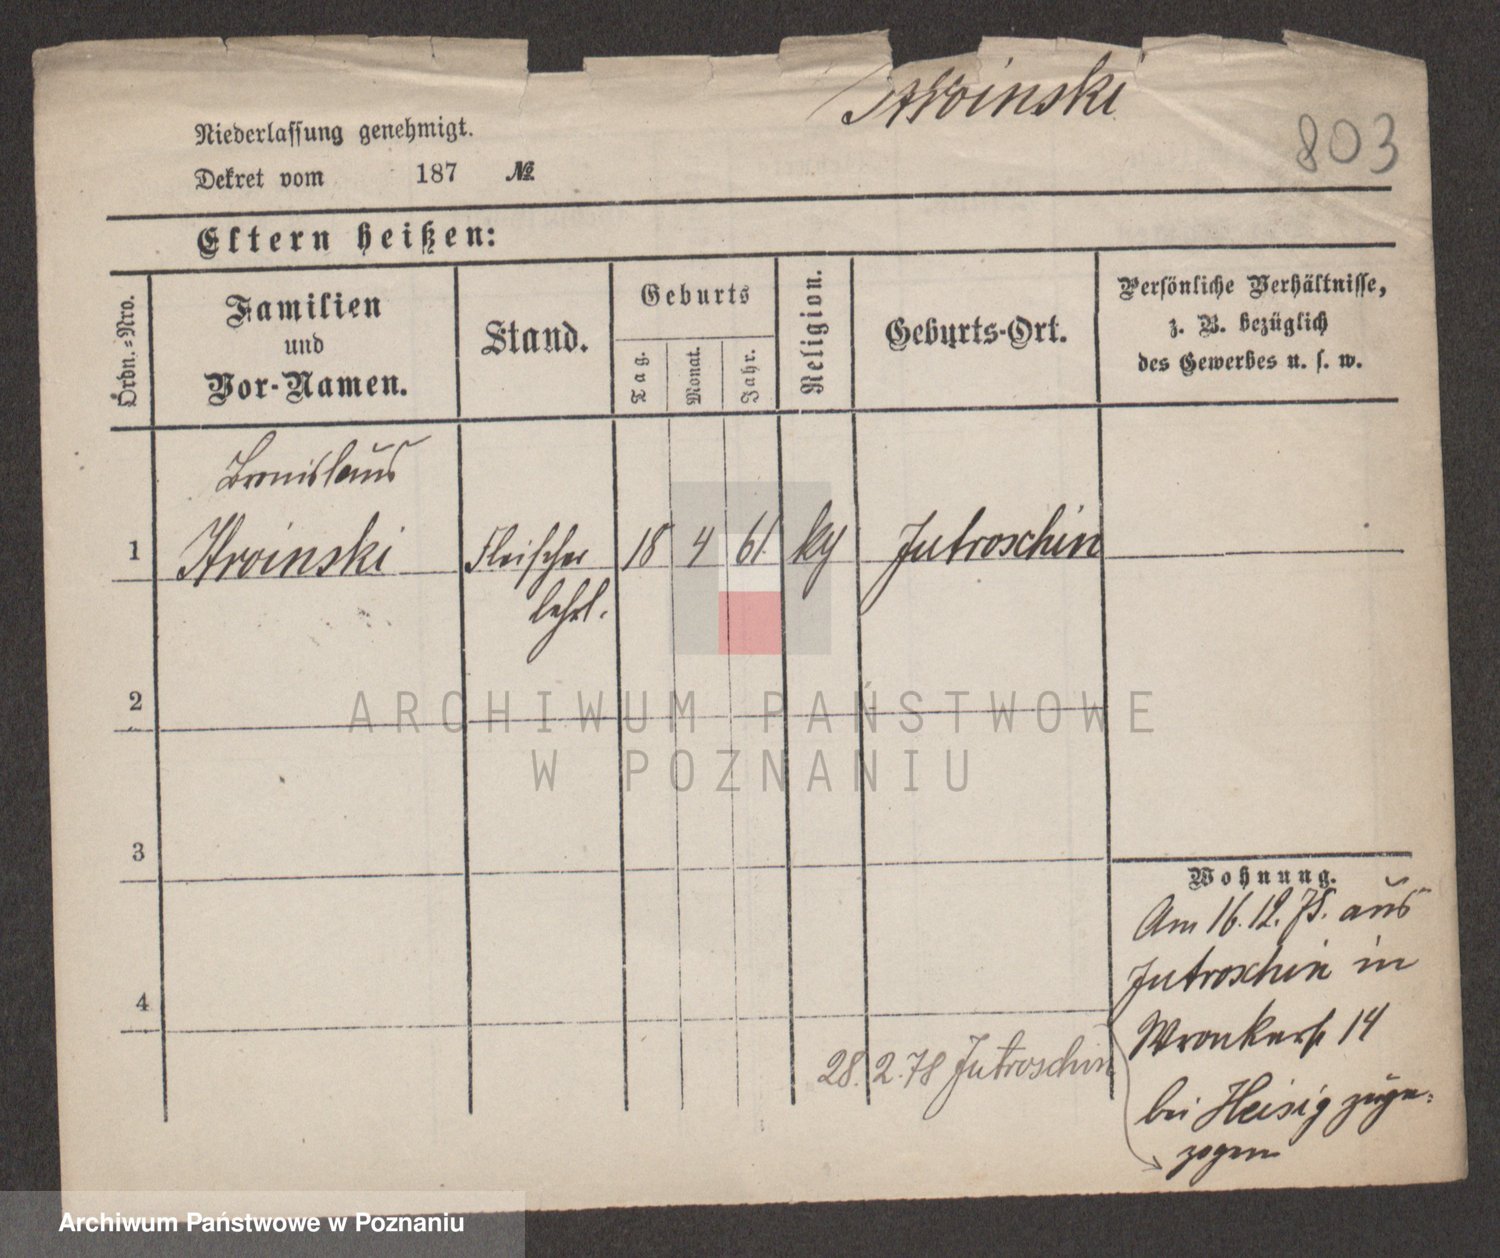 Stroinski
803
Niederlassung genehmigt.
Dekret vom 187 №
Eltern heißen:
Ordn.-Nro.
Familien
und
Vor-Namen.
Stand.
Geburts
Tag.
Monat.
Jahr.
Religion.
Geburts-Ort.
Persönliche Verhältnisse,
z. B. bezüglich
des Gewerbes u. s. w.
Bronislaus
1 Stroinski Fleischer 18 4 61. Jutroschin
lehrl.
2
3
4
Wohnung.
Am 16.12.75. aus
Jutroschin in
Wronkerstr 14
bei Heisig zuge-
zogen
28.2.78 Jutroschin
ARCHIWUM PAŃSTWOWE
W POZNANIU
Archiwum Państwowe w Poznaniu